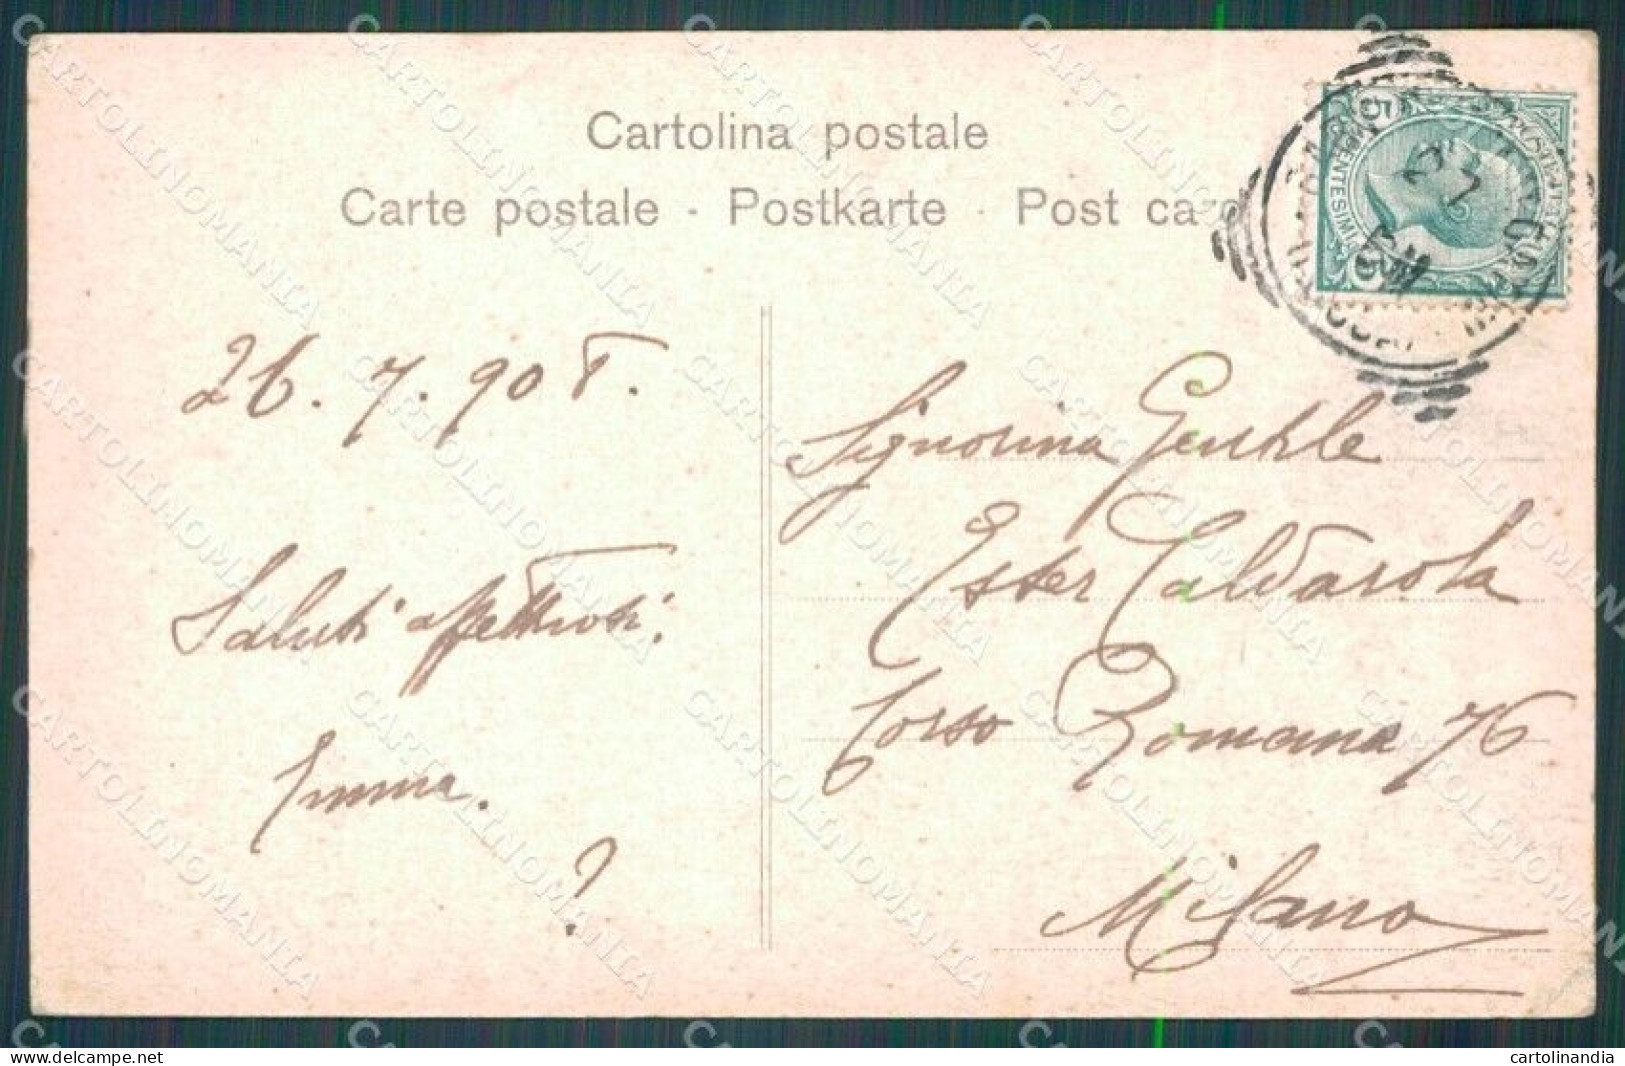 Cartolina postale
Carte postale - Postkarte - Post card
POSTE ITALIANE
CENTESIMI
5
5
26.7.908.
Saluti affettuosi.
Emma.
?
Signorina Gentile
Ester Caldarola
Corso Romana 76
Milano
CARTOLINOMANIA
see my other items at www.delcampe.net
cartolinandia